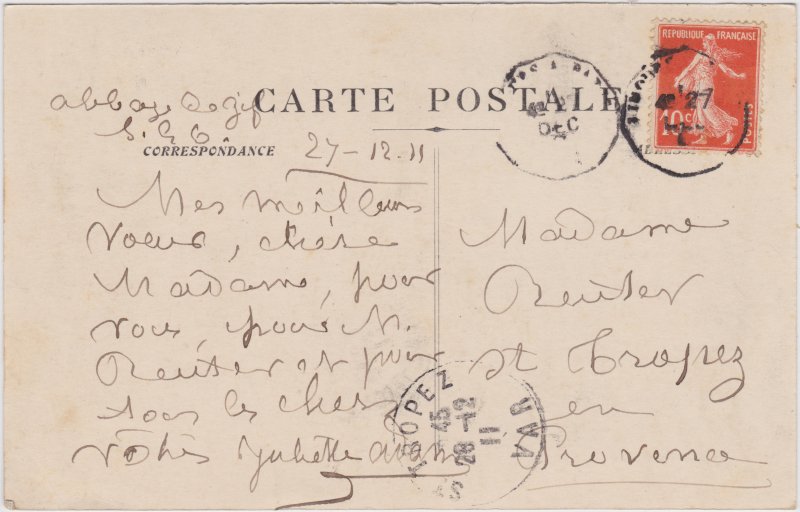 CARTE POSTALE
abbaye de gif
S. & O.
CORRESPONDANCE
27-12.11
Mes meilleurs
vœux, chère
Madame, pour
vous, pour M.
Reuter et pour
tous les chers
vôtres Juliette Adam
Madame
Reuter
St Tropez
en
Provence
RÉPUBLIQUE FRANÇAISE
10c
POSTES
27
DEC
27
ST TROPEZ
VAR
45
28-12
11